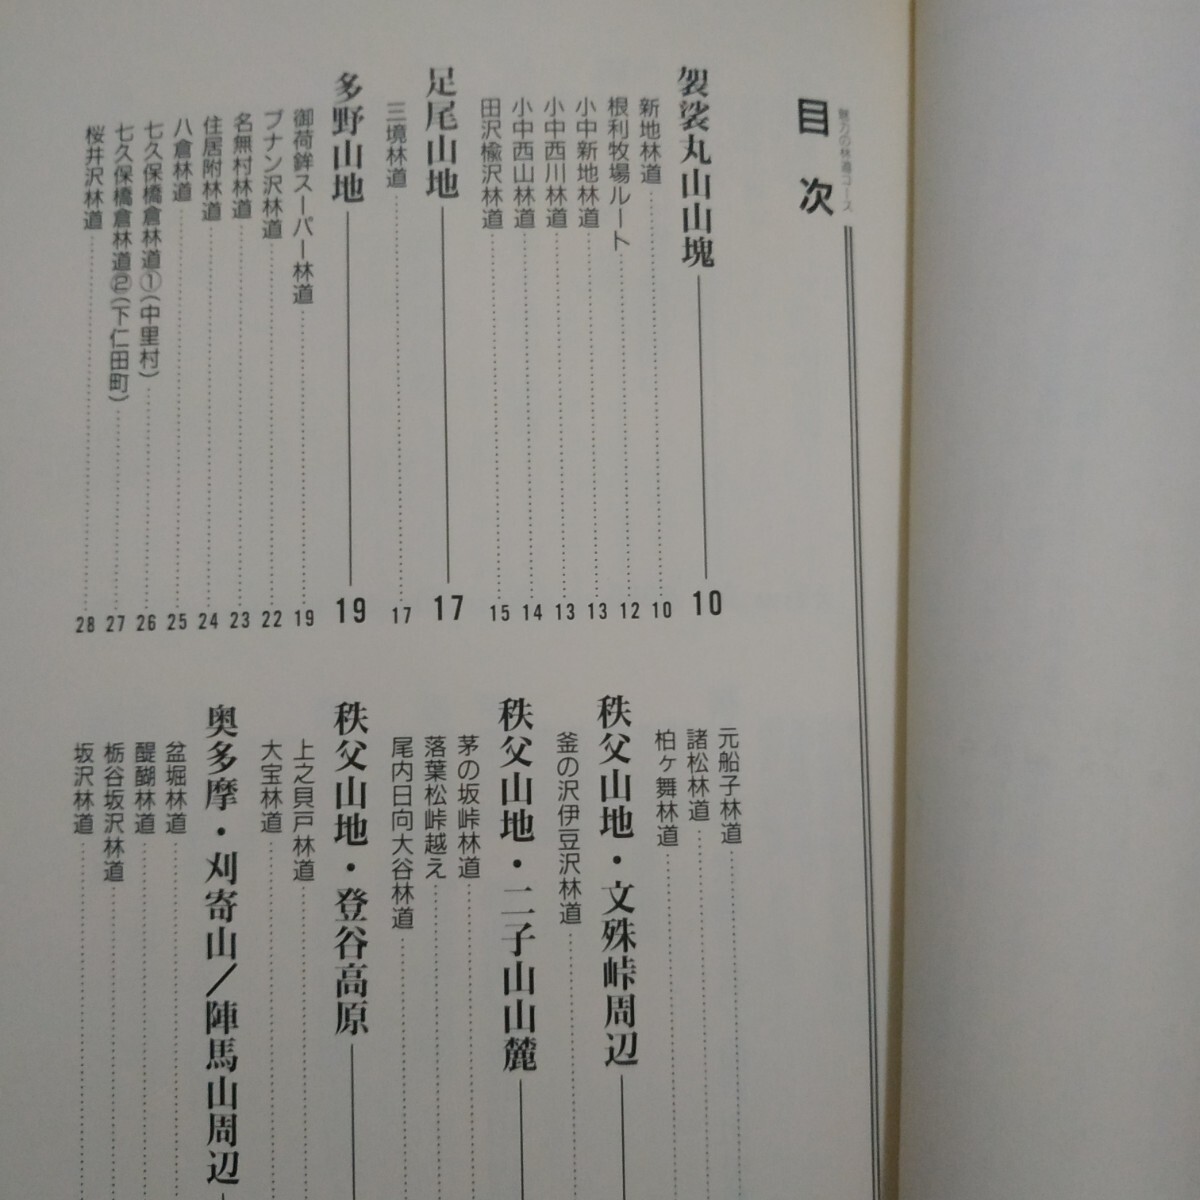 魅力の林道コース
目次
袈裟丸山山塊 10
新地林道 10
根利牧場ルート 12
小中新地林道 13
小中西川林道 13
小中西山林道 14
田沢楡沢林道 15
足尾山地 17
三境林道 17
多野山地 19
御荷鉾スーパー林道 19
ブナン沢林道 22
名無村林道 23
住居附林道 24
八倉林道 25
七久保橋倉林道①(中里村) 26
七久保橋倉林道②(下仁田町) 27
桜井沢林道 28
元船子林道
諸松林道
柏ヶ舞林道
秩父山地・文殊峠周辺
釜の沢伊豆沢林道
秩父山地・二子山山麓
茅の坂峠林道
落葉松峠越え
尾内日向大谷林道
秩父山地・登谷高原
上之貝戸林道
大宝林道
奥多摩・刈寄山/陣馬山周辺
盆堀林道
醍醐林道
栃谷坂沢林道
坂沢林道